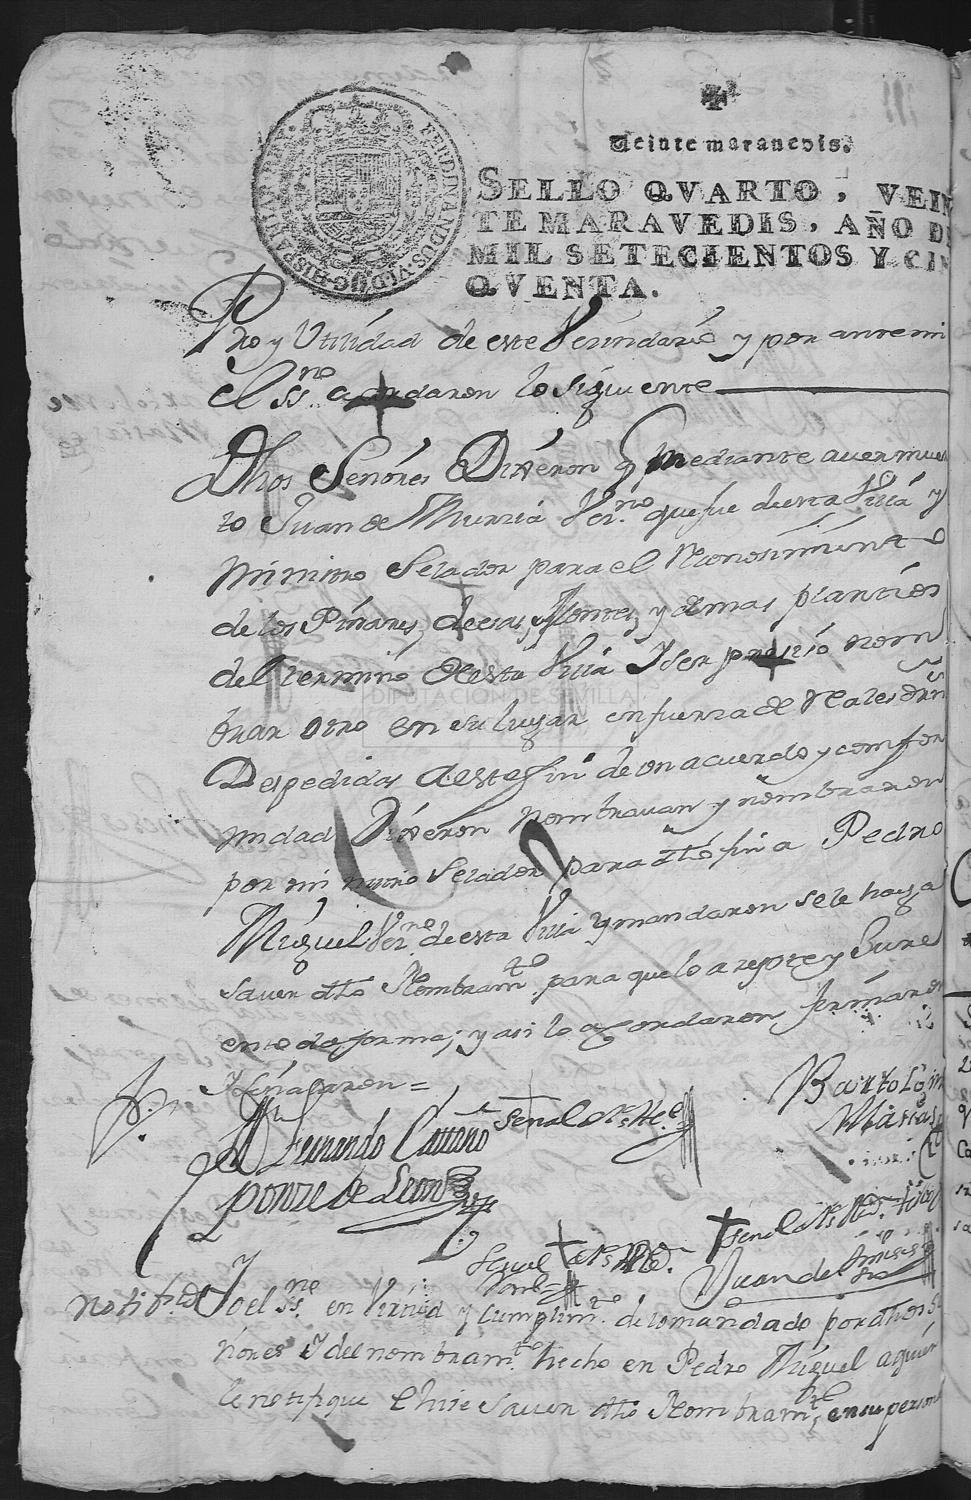 HISPANIAR. REX. FERDINANDUS. VI. D. G.
Veinte maravedis.
SELLO QVARTO, VEIN
TE MARAVEDIS, AÑO DE
MIL SETECIENTOS Y CIN
QVENTA.
Pro y Utilidad de este Vecindario y por ante mi
el ssno acordaron lo siguiente
Dhos Señores Dixeron q mediante aver muer
to Juan de Murcia Vezno que fue desta Villa y
ministro Selador para el Reconosimiento
de los Pinares, decsas, Montes, y demas plantios
del termino desta Villa y ser presiso nom
brar otro en su lugar en fuerza de Reales Ordns
Despedidas a este fin de un acuerdo y confor
midad Dixeron nombravan y nombraron
por ministro Selador para dho fin a Pedro
Miguel Vezno de esta Villa y mandaron se le haga
saver dho Nombramto para que lo azepte y Jure
en toda forma; y asi lo acordaron firmaron
y señalaron =
Dn Fernando Cattaño
Ponze de Leon
Señal de
Bartolom
Matias
Señal de
Señal de
Juan de
notifon Yo el ssno en Virtud y Cumplimto de lo mandado por dhos Se
ñores y del nombramto hecho en Pedro Miguel a quien
le notifique e hise saver dho Nombramto en su persona
DIPUTACION DE SEVILLA